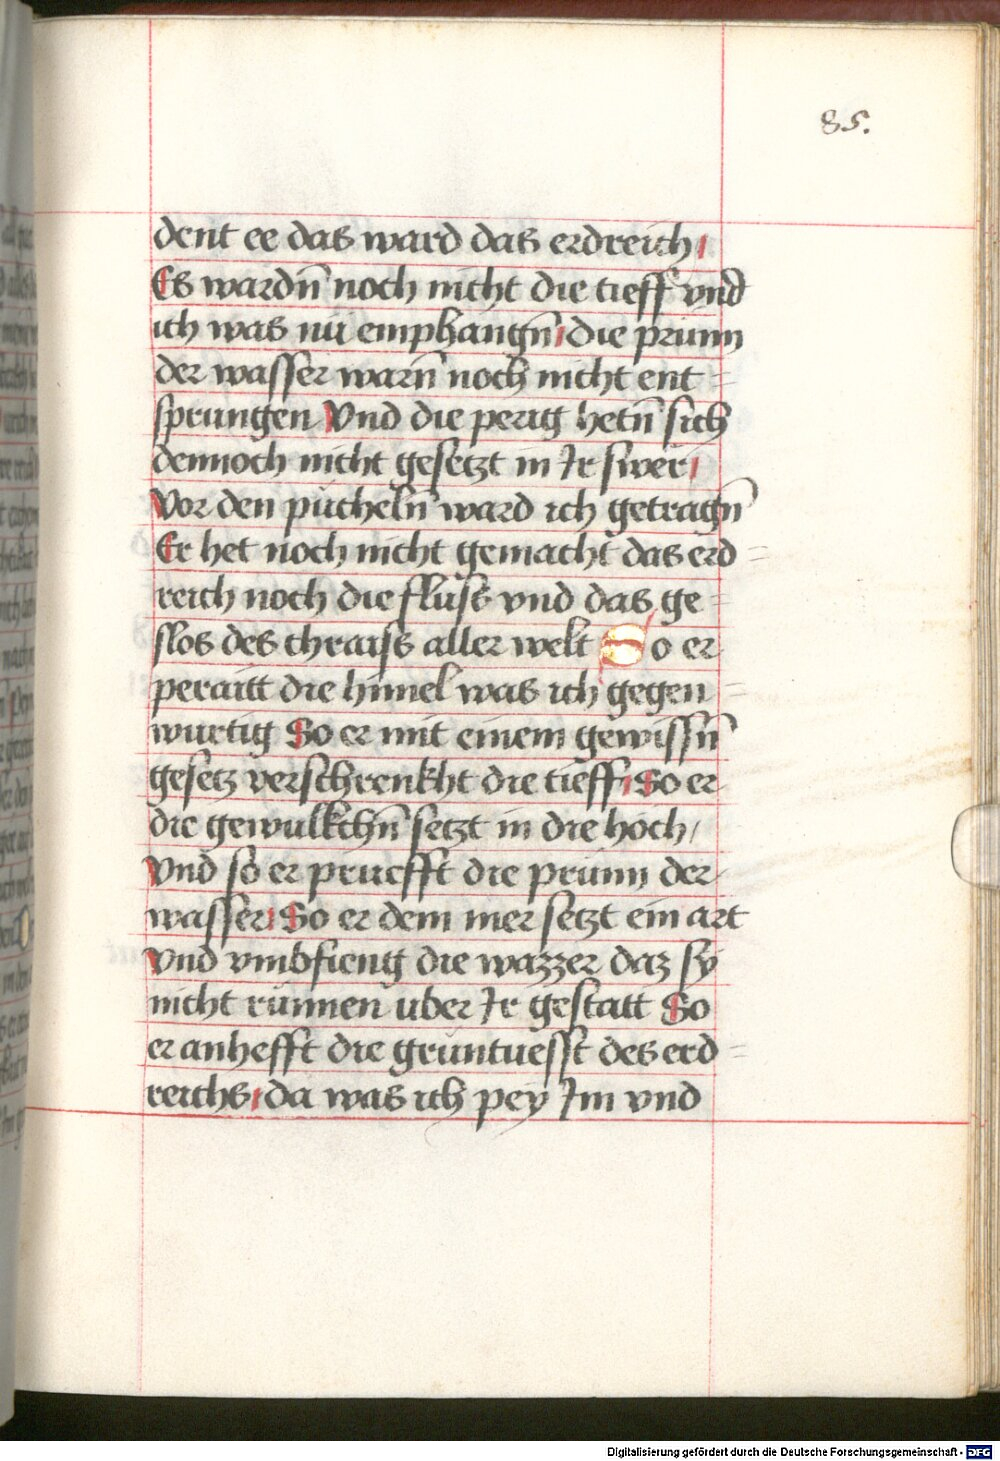 85.
dent ee das ward das erdreich /
Es wardn̄ noch nicht die tieff vnd
ich was nu emphangn̄ / die prunn
der wasser warn̄ noch nicht ent =
sprungen Vnd die perig hetn̄ sich
dennoch nicht gesetzt in Ir swer /
Vor den pücheln̄ ward ich getragn̄
Er het noch nicht gemacht das erd =
reich noch die fluss vnd das ge =
slos des chraiss aller welt So er
peraitt die himel was ich gegen =
wurtig So er mit einem gewissn̄
gesetz verschrenkht die tieff / So er
die gewulkchn̄ setzt in die hoch /
Vnd so er pruefft die prunn der
wasser / So er dem mer setzt ein art
Vnd vmbfieng die wazzer daz sy
nicht rünnen uber Ir gestatt So
er anhefft die gruntuesst des erd =
reichs / da was ich pey Im vnd
Digitalisierung gefördert durch die Deutsche Forschungsgemeinschaft - DFG